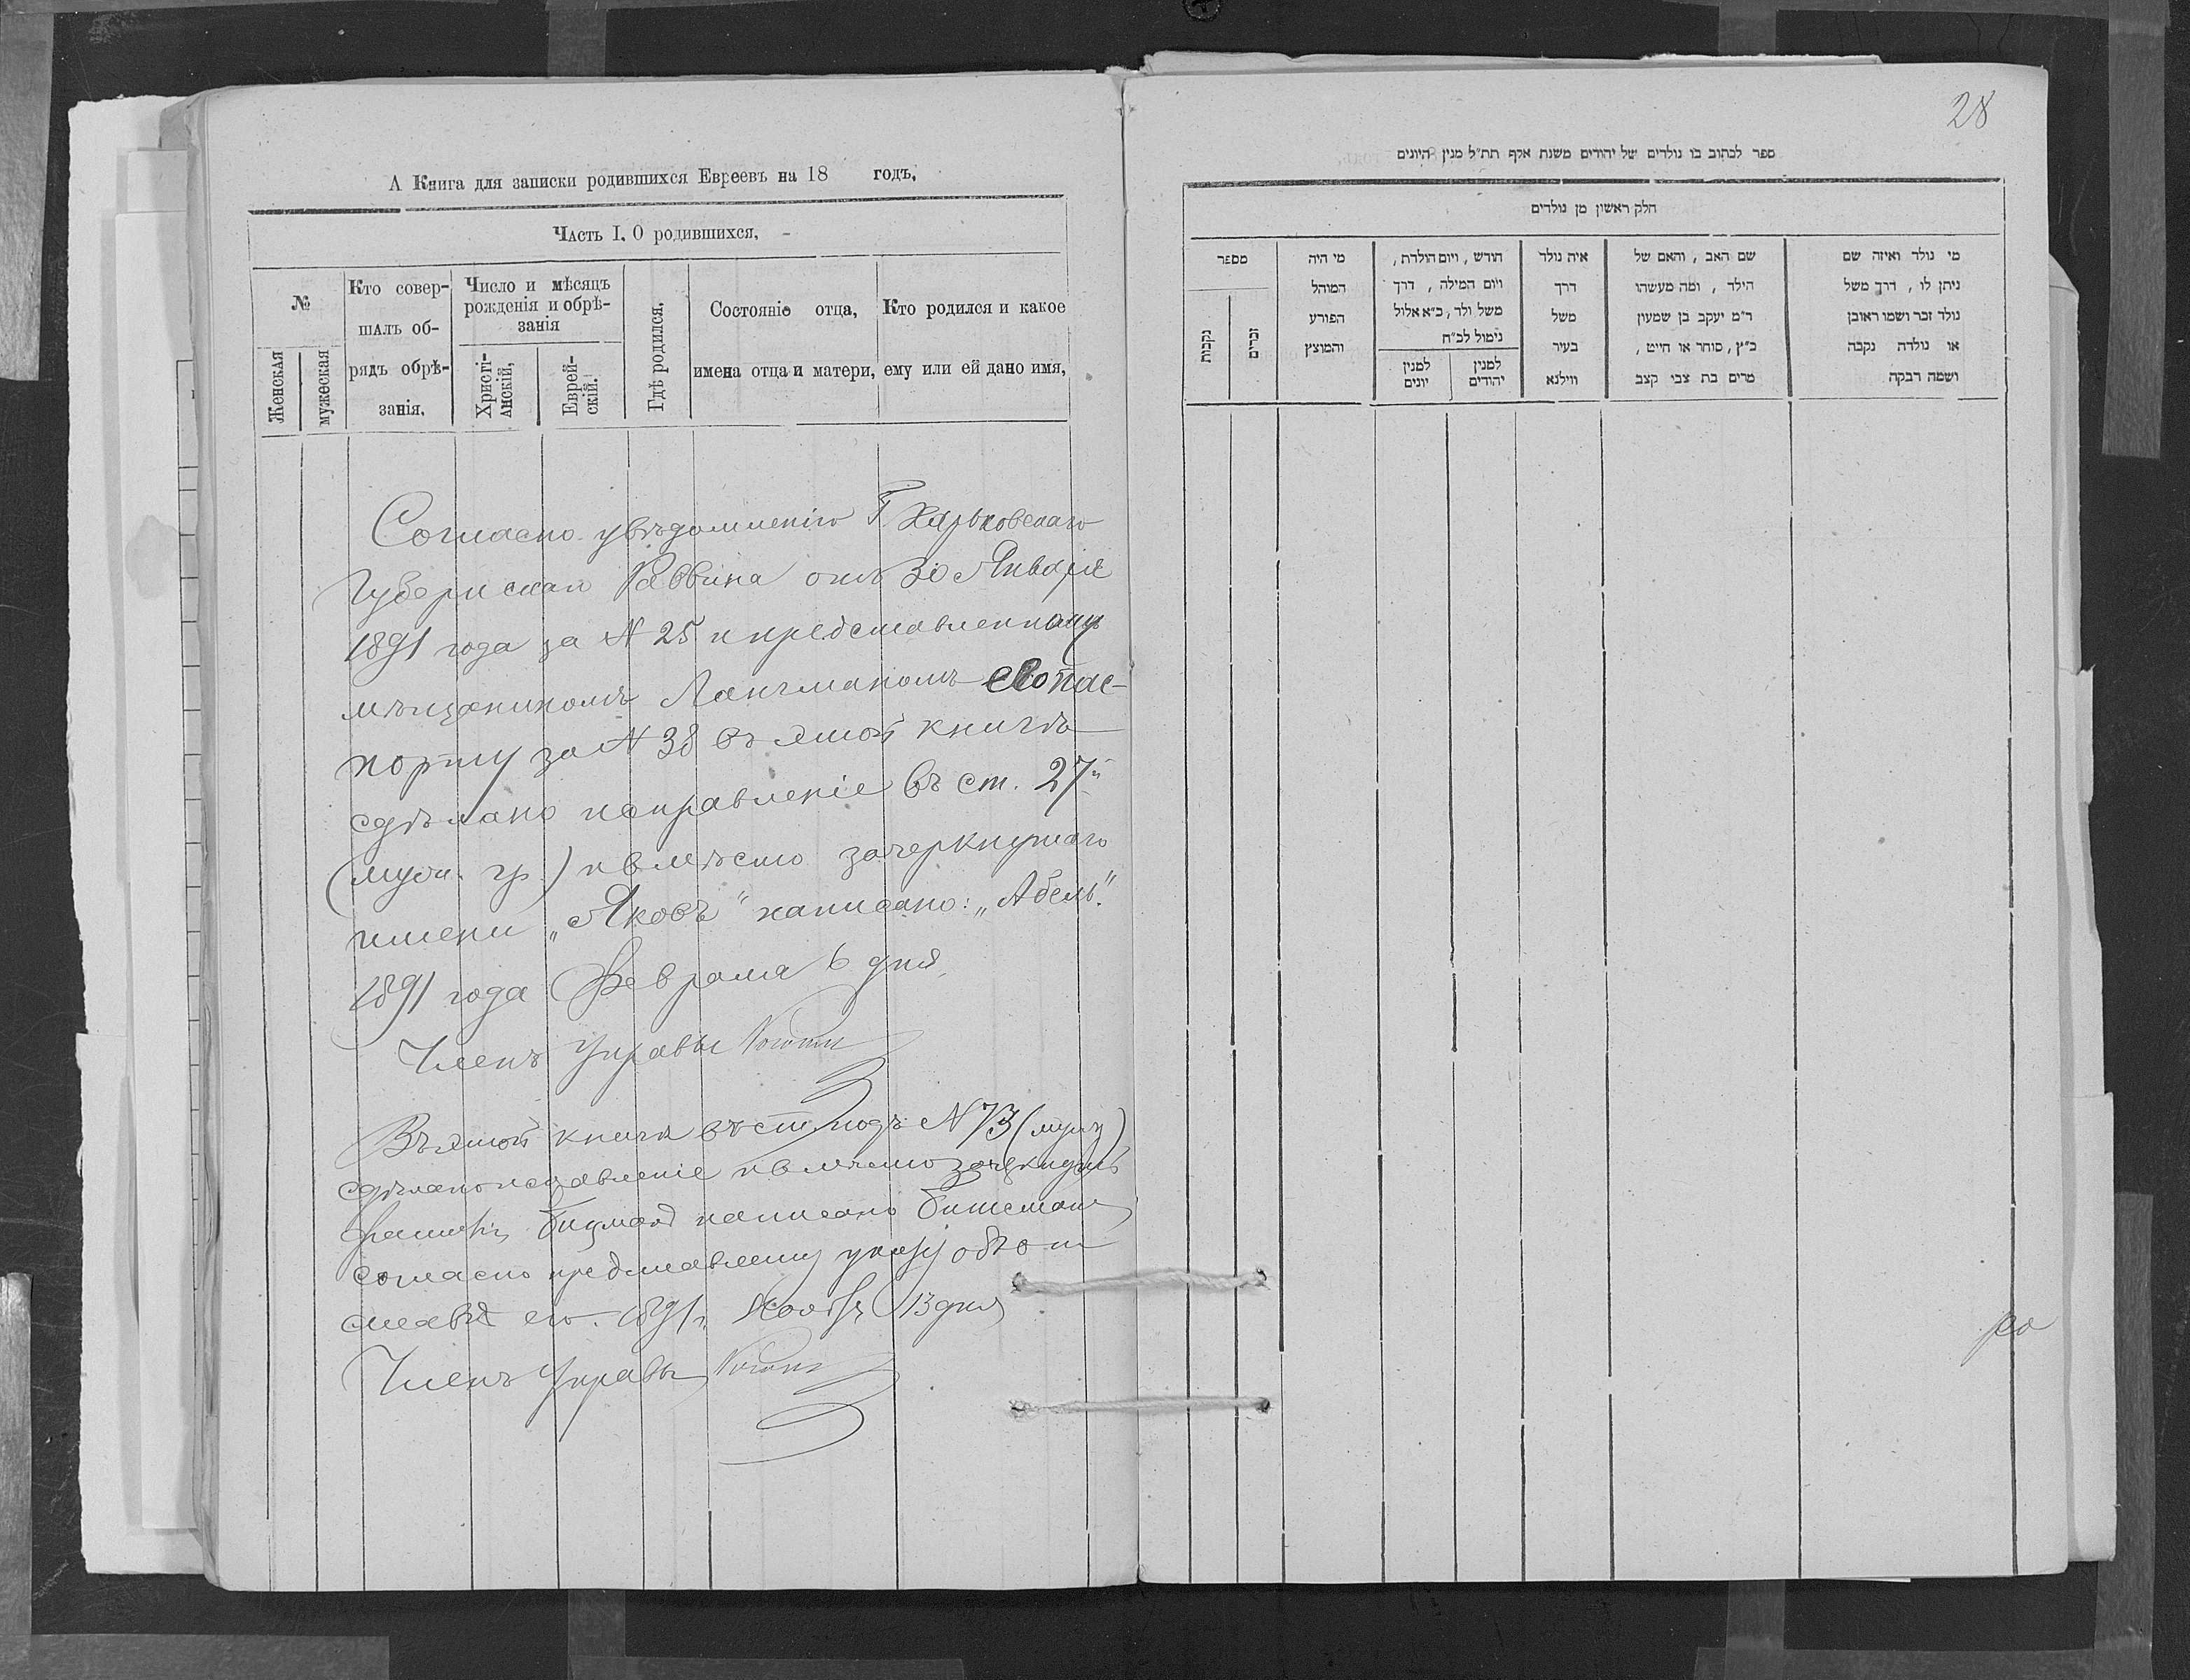 А Книга для записки родившихся Евреевъ на 18 годъ.
Часть I. О родившихся.
№
Женская
мужеская
Кто совер-
шалъ об-
рядъ обрѣ-
занія.
Число и мѣсяцъ
рожденія и обрѣ-
занія
Христі-
анскій.
Еврей-
скій.
Гдѣ родился.
Состояніе отца,
имена отца и матери,
Кто родился и какое
ему или ей дано имя,
Согласно увѣдомленію Г. Харьковскаго
Губернскаго Раввина отъ 30 Января
1891 года за № 25 и представленному
мѣщаниномъ Лангманомъ свопас-
порту за № 38 въ этой книгѣ
сдѣлано исправленіе въ ст. 27й
(муж. гр.) и вмѣсто зачеркнутаго
имени „Яковъ" написано: „Абель".
1891 года Февраля 6 дня.
Членъ Управы
Въ этой книги въ ст. подъ № 73 (муж)
сдѣлано исправленіе и вмѣсто
написано
согласно указу объ от
1891 г. Ноября 13 дня
Членъ Управы
28
ספר לכתוב בו נולדים של יהודים משנת אלף תת״ל מנין היונים
חלק ראשון מן נולדים
מי נולד ואיזה שם
ניתן לו, דרך משל
נולד זכר ושמו ראובן
או נולדה נקבה
ושמה רבקה
שם האב, והאם של
הילד, ומה מעשהו
ד״מ יעקב בן שמעון
כ״ץ, סוחר או חייט,
מרים בת צבי קצב
איה נולד
דרך
משל
בעיר
ווילנא
חודש, ויום הולדת,
ויום המילה, דרך
משל ולד, כ״א אלול
נימול לכ״ח
למנין
יהודים
למנין
יונים
מי היה
המוהל
הפורע
והמוצץ
מספר
זכרים
נקבות